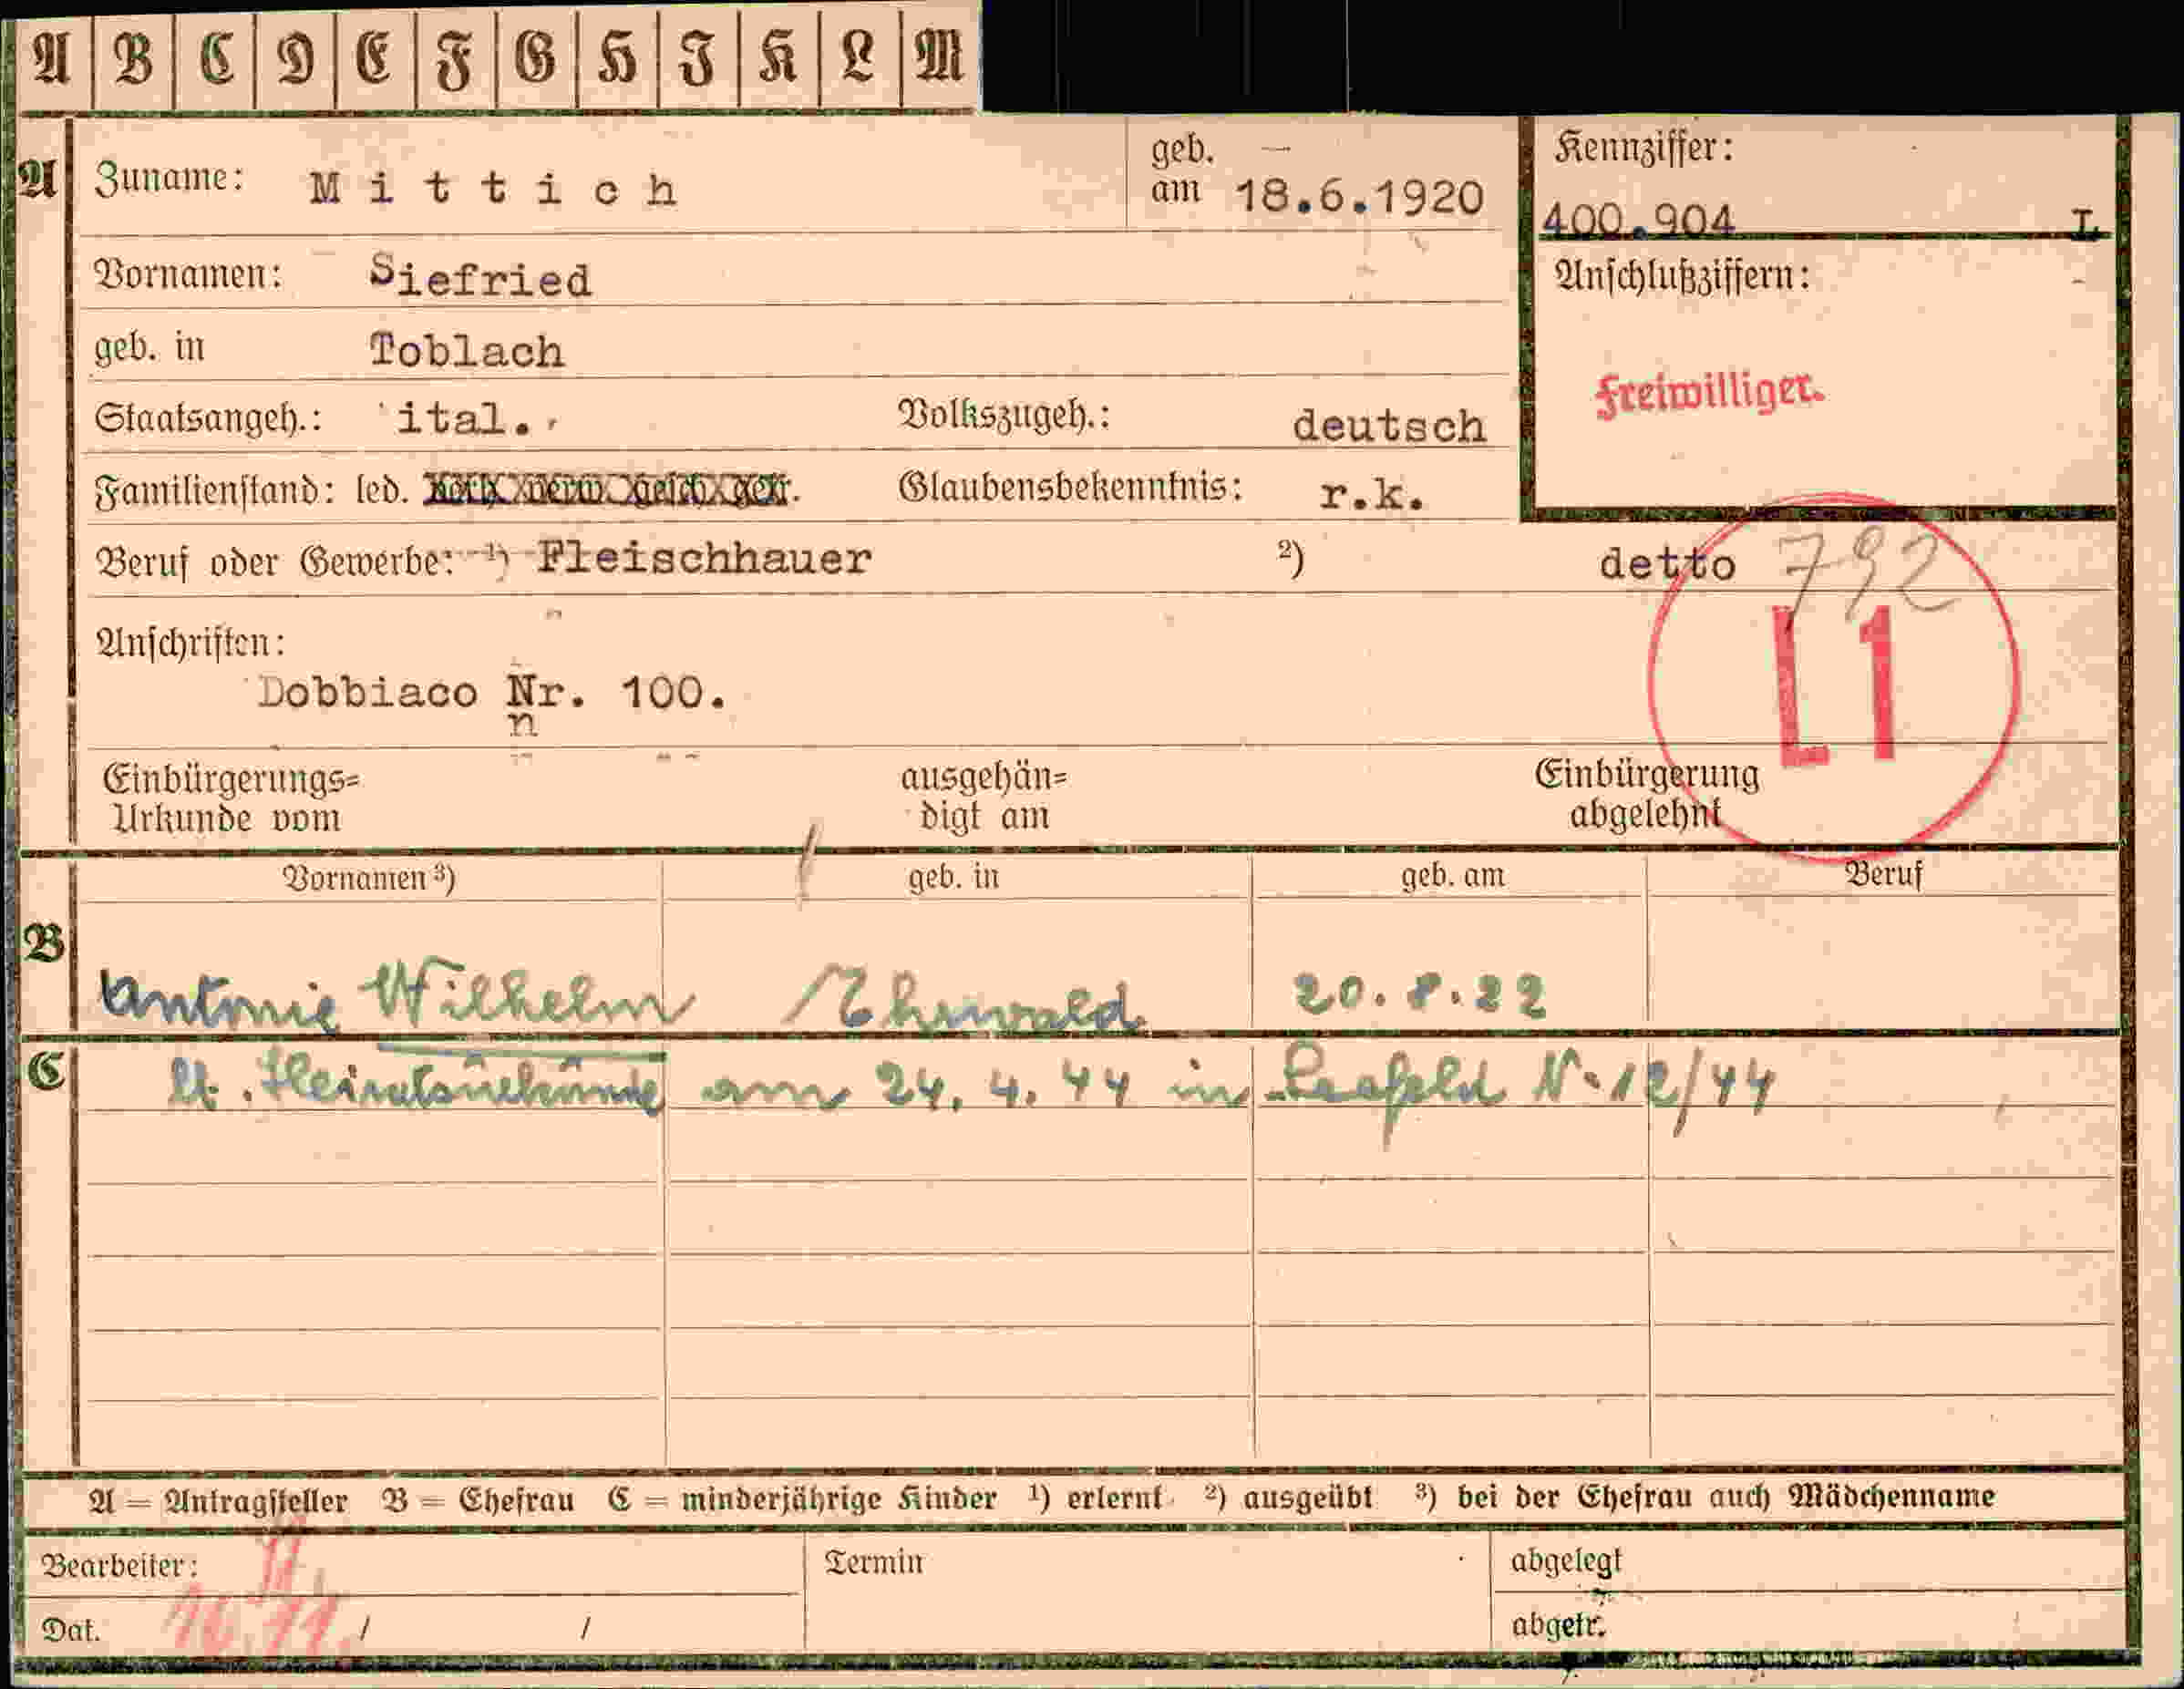 A B C D E F G H I K L M
A
Zuname: Mittich
geb. am 18.6.1920
Kennziffer:
400.904 I.
Vornamen: Siefried
Anschlußziffern:
geb. in Toblach
Freiwilliger.
Staatsangeh.: ital. Volkszugeh.: deutsch
Familienstand: led. verh. verw. gesch. getr. Glaubensbekenntnis: r.k.
Beruf oder Gewerbe: 1) Fleischhauer 2) detto 792
L1
Anschriften:
Dobbiaco Nr. 100.
n
Einbürgerungs= ausgehän= Einbürgerung
Urkunde vom digt am abgelehnt
Vornamen 3) geb. in geb. am Beruf
B
Antonie Wilhelm Ehrwald 20.8.22
C
lt. Heiratsurkunde am 24.4.44 in Seefeld N. 12/44
A = Antragsteller B = Ehefrau C = minderjährige Kinder 1) erlernt 2) ausgeübt 3) bei der Ehefrau auch Mädchenname
Bearbeiter: Termin abgelegt
Dat. / / abgetr.